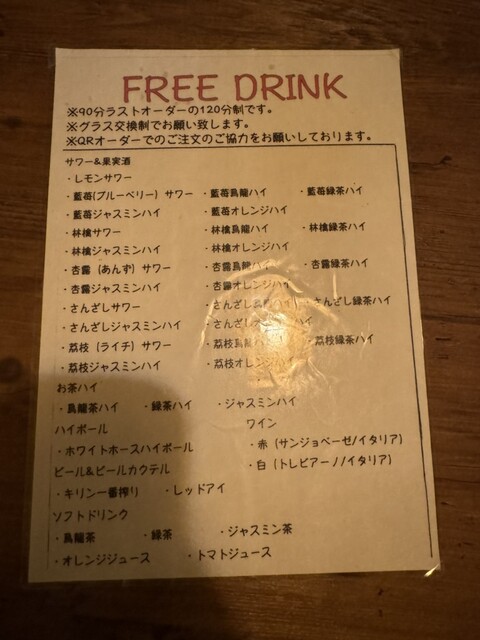 FREE DRINK
※90分ラストオーダーの120分制です。
※グラス交換制でお願い致します。
※QRオーダーでのご注文のご協力をお願いしております。
サワー&果実酒
・レモンサワー
・藍苺(ブルーベリー) サワー ・藍苺烏龍ハイ ・藍苺緑茶ハイ
・藍苺ジャスミンハイ ・藍苺オレンジハイ
・林檎サワー ・林檎烏龍ハイ ・林檎緑茶ハイ
・林檎ジャスミンハイ ・林檎オレンジハイ
・杏露 (あんず) サワー ・杏露烏龍ハイ ・杏露緑茶ハイ
・杏露ジャスミンハイ ・杏露オレンジハイ
・さんざしサワー ・さんざし烏龍ハイ ・さんざし緑茶ハイ
・さんざしジャスミンハイ ・さんざし
・茘枝 (ライチ) サワー ・茘枝烏龍ハイ ・茘枝緑茶ハイ
・茘枝ジャスミンハイ ・茘枝オレンジハイ
お茶ハイ
・烏龍茶ハイ ・緑茶ハイ ・ジャスミンハイ
ハイボール ワイン
・ホワイトホースハイボール ・赤 (サンジョベーゼ/イタリア)
ビール&ビールカクテル ・白 (トレビアーノ/イタリア)
・キリン一番搾り ・レッドアイ
ソフトドリンク
・烏龍茶 ・緑茶 ・ジャスミン茶
・オレンジジュース ・トマトジュース